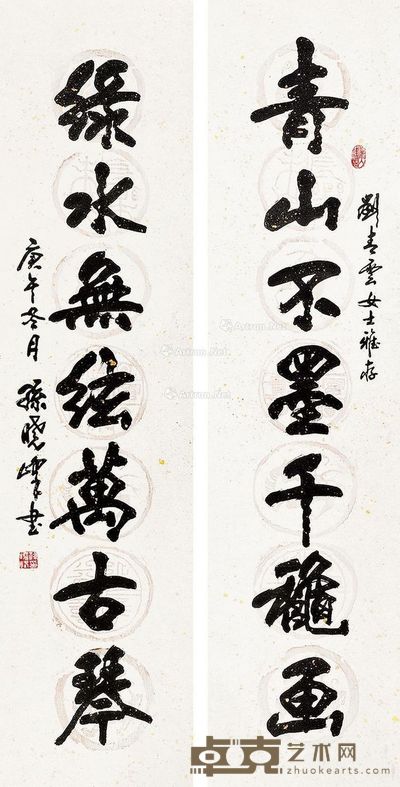 青山不墨千穐画
劉青雲女士雅存
綠水無絃萬古琴
庚午冬月 孫曉峯书
Artron.Net
卓克艺术网
zhuokearts.com